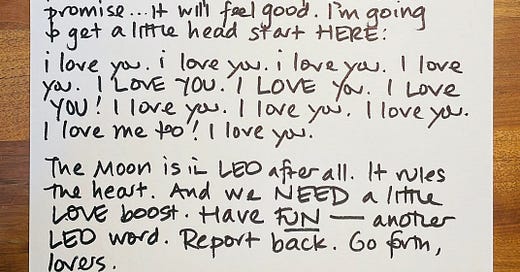 promise...It will feel good. I'm going
to get a little head start HERE:
i love you. i love you. i love you. I love
you. I LOVE YOU. I LOVE you. I LOVE
YOU! I love you. I love you. I love you.
I love me too! I love you.
The Moon is in LEO after all. It rules
the heart. And we NEED a little
LOVE boost. Have FUN — another
LEO word. Report back. Go forth,
lovers.